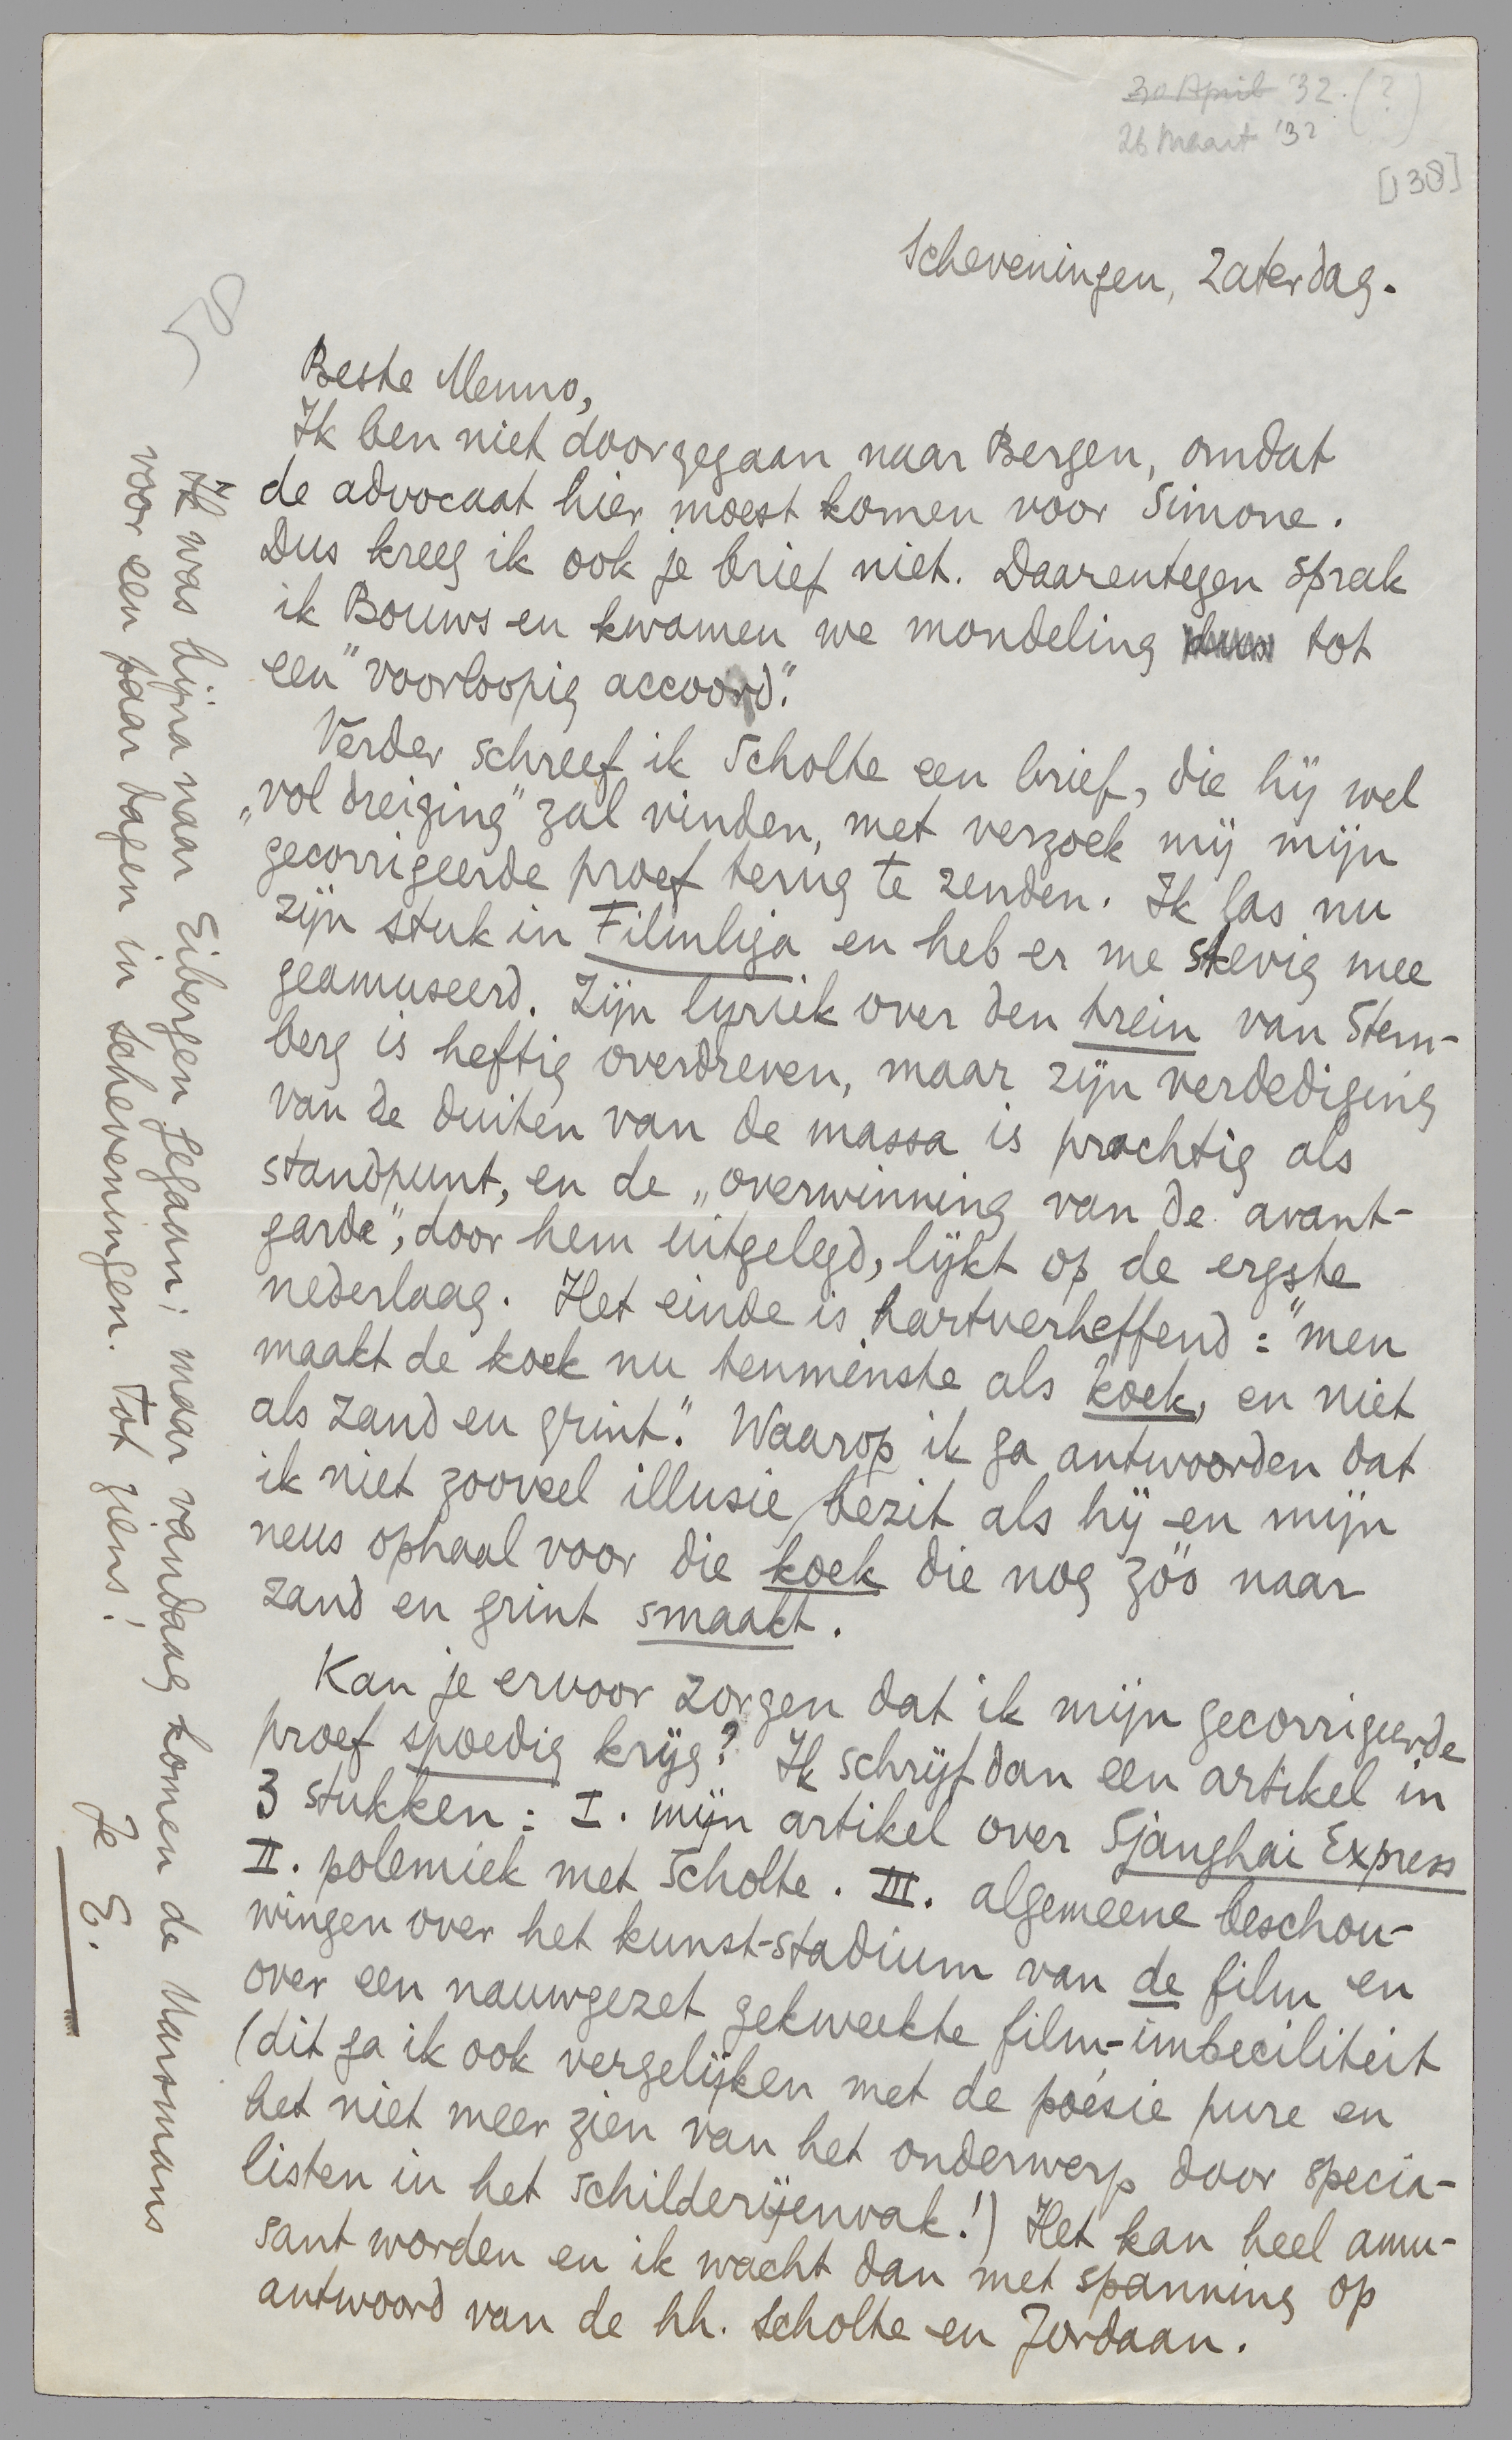 30 April '32. (?)
26 Maart '32
[138]
Scheveningen, Zaterdag.
Beste Menno,
Ik ben niet doorgegaan naar Bergen, omdat
de advocaat hier moest komen voor Simone.
Dus kreeg ik ook je brief niet. Daarentegen sprak
ik Bouws en kwamen we mondeling tot
een "voorloopig accoord".
Verder schreef ik Scholte een brief, die hij wel
„vol dreiging" zal vinden, met verzoek mij mijn
gecorrigeerde proef terug te zenden. Ik las nu
zijn stuk in Filmliga en heb er me stevig mee
geamuseerd. Zijn lyriek over den trein van Stern-
berg is heftig overdreven, maar zijn verdediging
van de duiten van de massa is prachtig als
standpunt, en de „overwinning van de avant-
garde", door hem uitgelegd, lijkt op de ergste
nederlaag. Het einde is hartverheffend: "men
maakt de koek nu tenminste als koek, en niet
als zand en grint." Waarop ik ga antwoorden dat
ik niet zooveel illusie bezit als hij en mijn
neus ophaal voor die koek die nog zóó naar
zand en grint smaakt.
Kan je ervoor zorgen dat ik mijn gecorrigeerde
proef spoedig krijg? Ik schrijf dan een artikel in
3 stukken: I. mijn artikel over Sjanghai Express
II. polemiek met Scholte. III. algemeene beschou-
wingen over het kunst-stadium van de film en
over een nauwgezet gekweekte film-imbeciliteit
(dit ga ik ook vergelijken met de poésie pure en
het niet meer zien van het onderwerp door specia-
listen in het schilderijenvak!) Het kan heel amu-
sant worden en ik wacht dan met spanning op
antwoord van de hh. Scholte en Jordaan.
Ik was bijna naar Eibergen gegaan; maar vandaag komen de Marsmans
voor een paar dagen in Scheveningen. Tot ziens!
Je E.